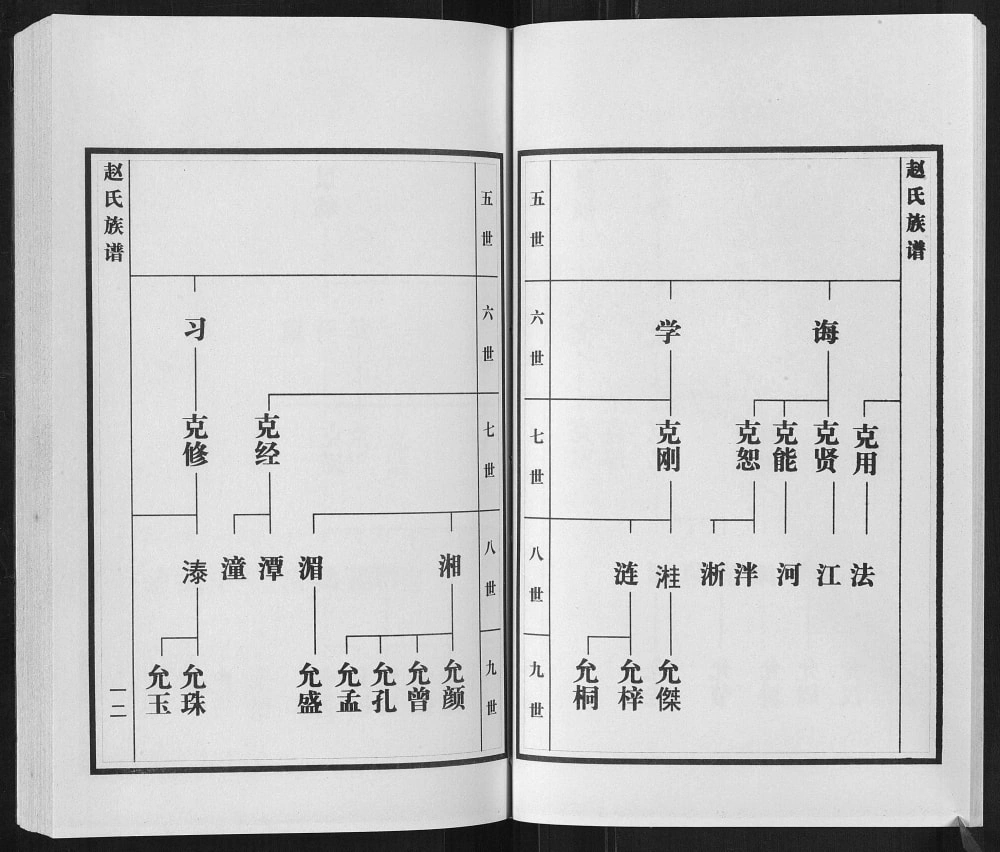 赵氏族谱
五世
六世
七世
八世
九世
诲
学
克用
克贤
克能
克恕
克刚
法
江
河
泮
浙
溎
涟
允傑
允梓
允桐
赵氏族谱
五世
六世
七世
八世
九世
习
克经
克修
湘
湄
潭
潼
溱
允颜
允曾
允孔
允孟
允盛
允珠
允玉
一二